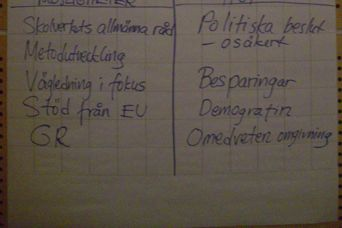 MÖJLIGHETER
Skolverkets allmänna råd
Metodutveckling
Vägledning i fokus
Stöd från EU
GR
Politiska beslut
– osäkert
Besparingar
Demografin
Omedveten omgivning